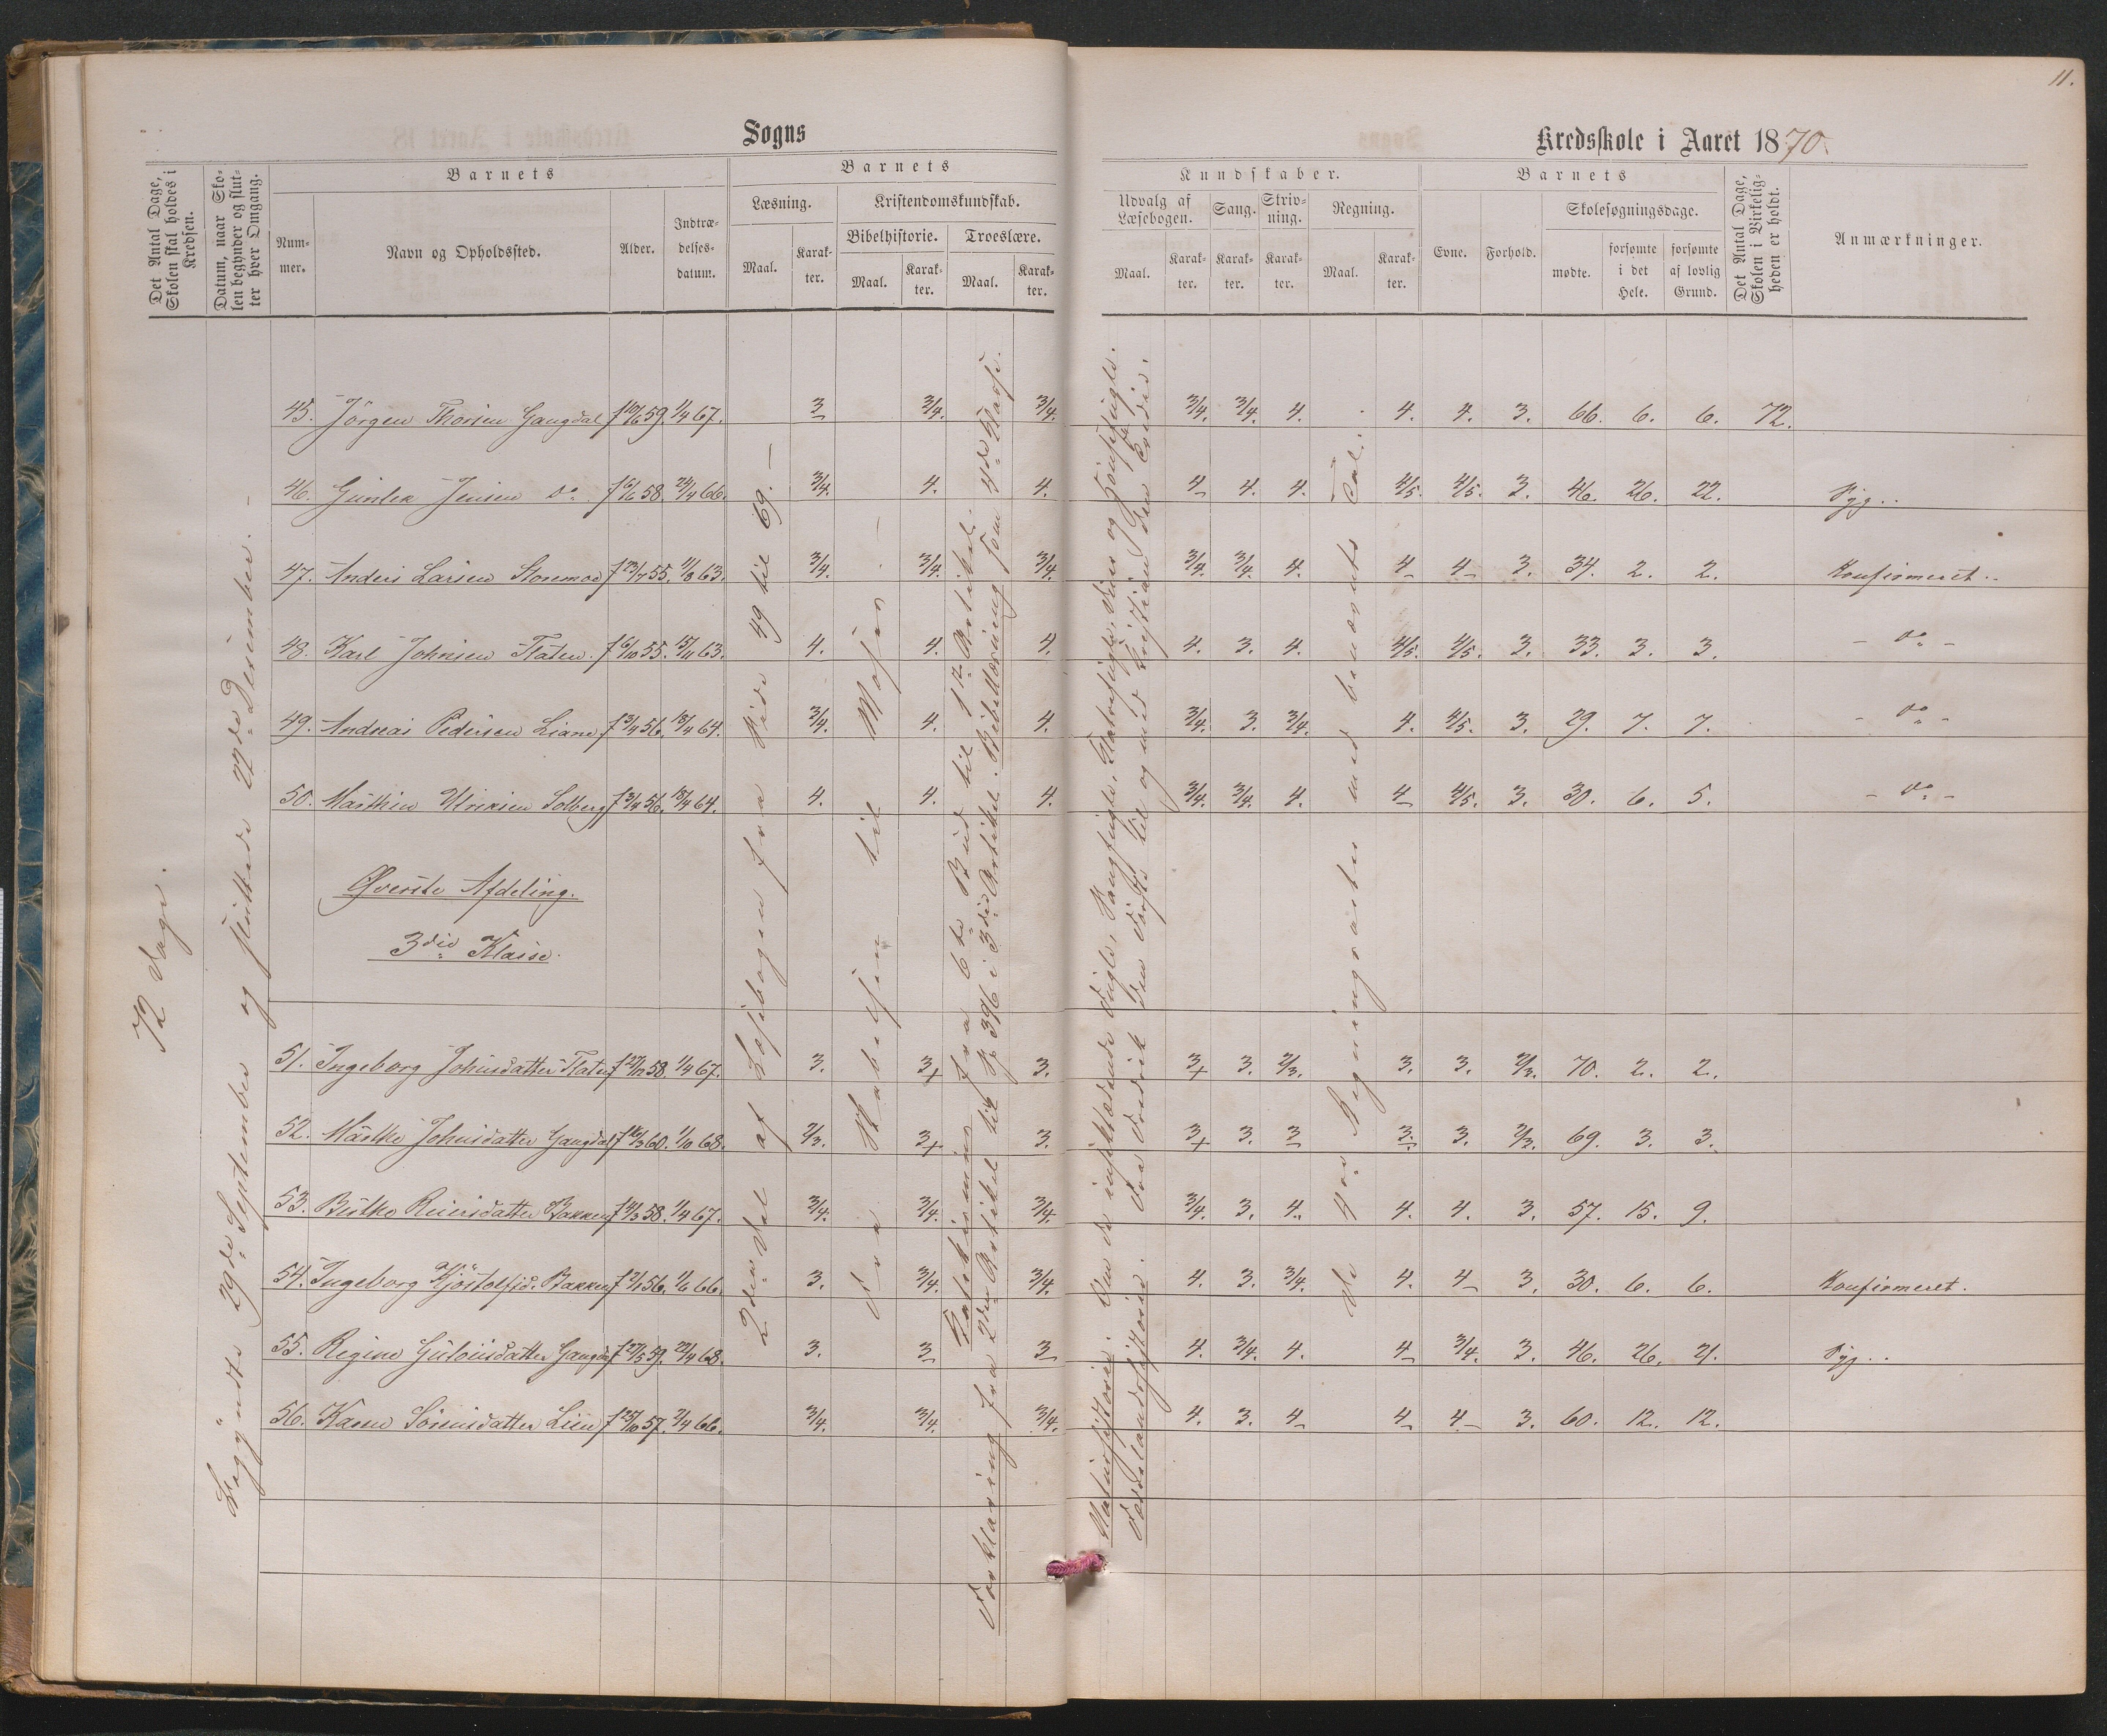 11.
Sogns
Kredsskole i Aaret 1870.
Det Antal Dage, Skolen skal holdes i Kredsen.
Datum, naar Skolen begynder og slutter hver Omgang.
Barnets
Nummer.
Navn og Opholdssted.
Alder.
Indtrædelsesdatum.
Barnets
Læsning.
Kristendomskundskab.
Bibelhistorie.
Troeslære.
Maal.
Karakter.
Maal.
Karakter.
Maal.
Karakter.
Kundskaber.
Udvalg af Læsebogen.
Sang.
Skrivning.
Regning.
Maal.
Karakter.
Karakter.
Karakter.
Maal.
Karakter.
Barnets
Evne.
Forhold.
Skolesøgningsdage.
mødte.
forsømte i det Hele.
forsømte af lovlig Grund.
Det Antal Dage, Skolen i Virkeligheden er holdt.
Anmærkninger.
72 Dage.
Begyndte 29de September og sluttede 22de Desember.
2den Del af Læsebogen fra Side 49 til 69.
Fra Skabelsen til Moses
Katekismus fra 6te Bud til 1ste Artikel.
Forklaring fra 2den Artikel til Sp. 396 i 3die Artikel. Bibellæsning som 4de Klasse.
De 4re Regningsarter med benævnte Tal.
45. Jörgen Thorsen Gaugdal f 10/6 59. 1/4 67. 3 3/4. 3/4. 3/4. 3/4. 4. 4. 4. 3. 66. 6. 6. 72.
46. Gunder Jensen do f 6/6 58. 24/4 66. 3/4. 4. 4. 4 4. 4. 4/5. 4/5. 3. 46. 26. 22. Syg..
47. Anders Larsen Storemoe f 23/7 55. 1/8 63. 3/4. 3/4. 3/4. 3/4. 3/4. 4. 4 4 3. 34. 2. 2. Konfirmeret..
48. Karl Johnsen Flaten. f 6/10 55. 15/11 63. 4. 4. 4. 4. 3. 4. 4/5. 4/5. 3. 33. 3. 3. - do -
49. Andreas Pedersen Liane f 3/4 56. 18/4 64. 3/4. 4. 4. 3/4. 3. 3/4. 4. 4/5. 3. 29. 7. 7. - do -
50. Mathin Ulriksen Solberg f 3/4 56. 18/4 64. 4. 4. 4. 3/4. 3/4. 4. 4 4/5. 3. 30. 6. 5. - do -
Øverste Afdeling.
3die Klasse.
51. Ingeborg Johnsdatter Flaten f 27/12 58. 1/4 67. 3. 3+ 3. 3+ 3. 2/3. 3. 3. 2/3. 70. 2. 2.
52. Marthe Johnsdatter Gaugdal f 16/3 60. 1/10 68. 2/3. 3+ 3. 3+ 3. 3 3. 3. 2/3. 69. 3. 3.
53. Birthe Reiersdatter Bakken f 14/3 58. 1/4 67. 3/4. 3/4. 3/4. 3/4. 3. 4. 4. 4. 3. 57. 15. 9.
54. Ingeborg Kjöstolfsd. Bakken f 2/1 56. 1/6 66. 3. 3/4. 3/4. 4. 3. 3/4. 4. 4 3. 30. 6. 6. Konfirmeret.
55. Regine Gulouisdatter Gaugdal f 27/5 59. 22/4 68. 3. 3 3 4. 3/4. 4. 4 3/4. 3. 46. 26. 21. Syg..
56. Karen Sörensdatter Lien f 25/10 57. 2/4 66. 3/4. 3/4. 3/4. 4. 3. 4 4 4 3. 60. 12. 12.